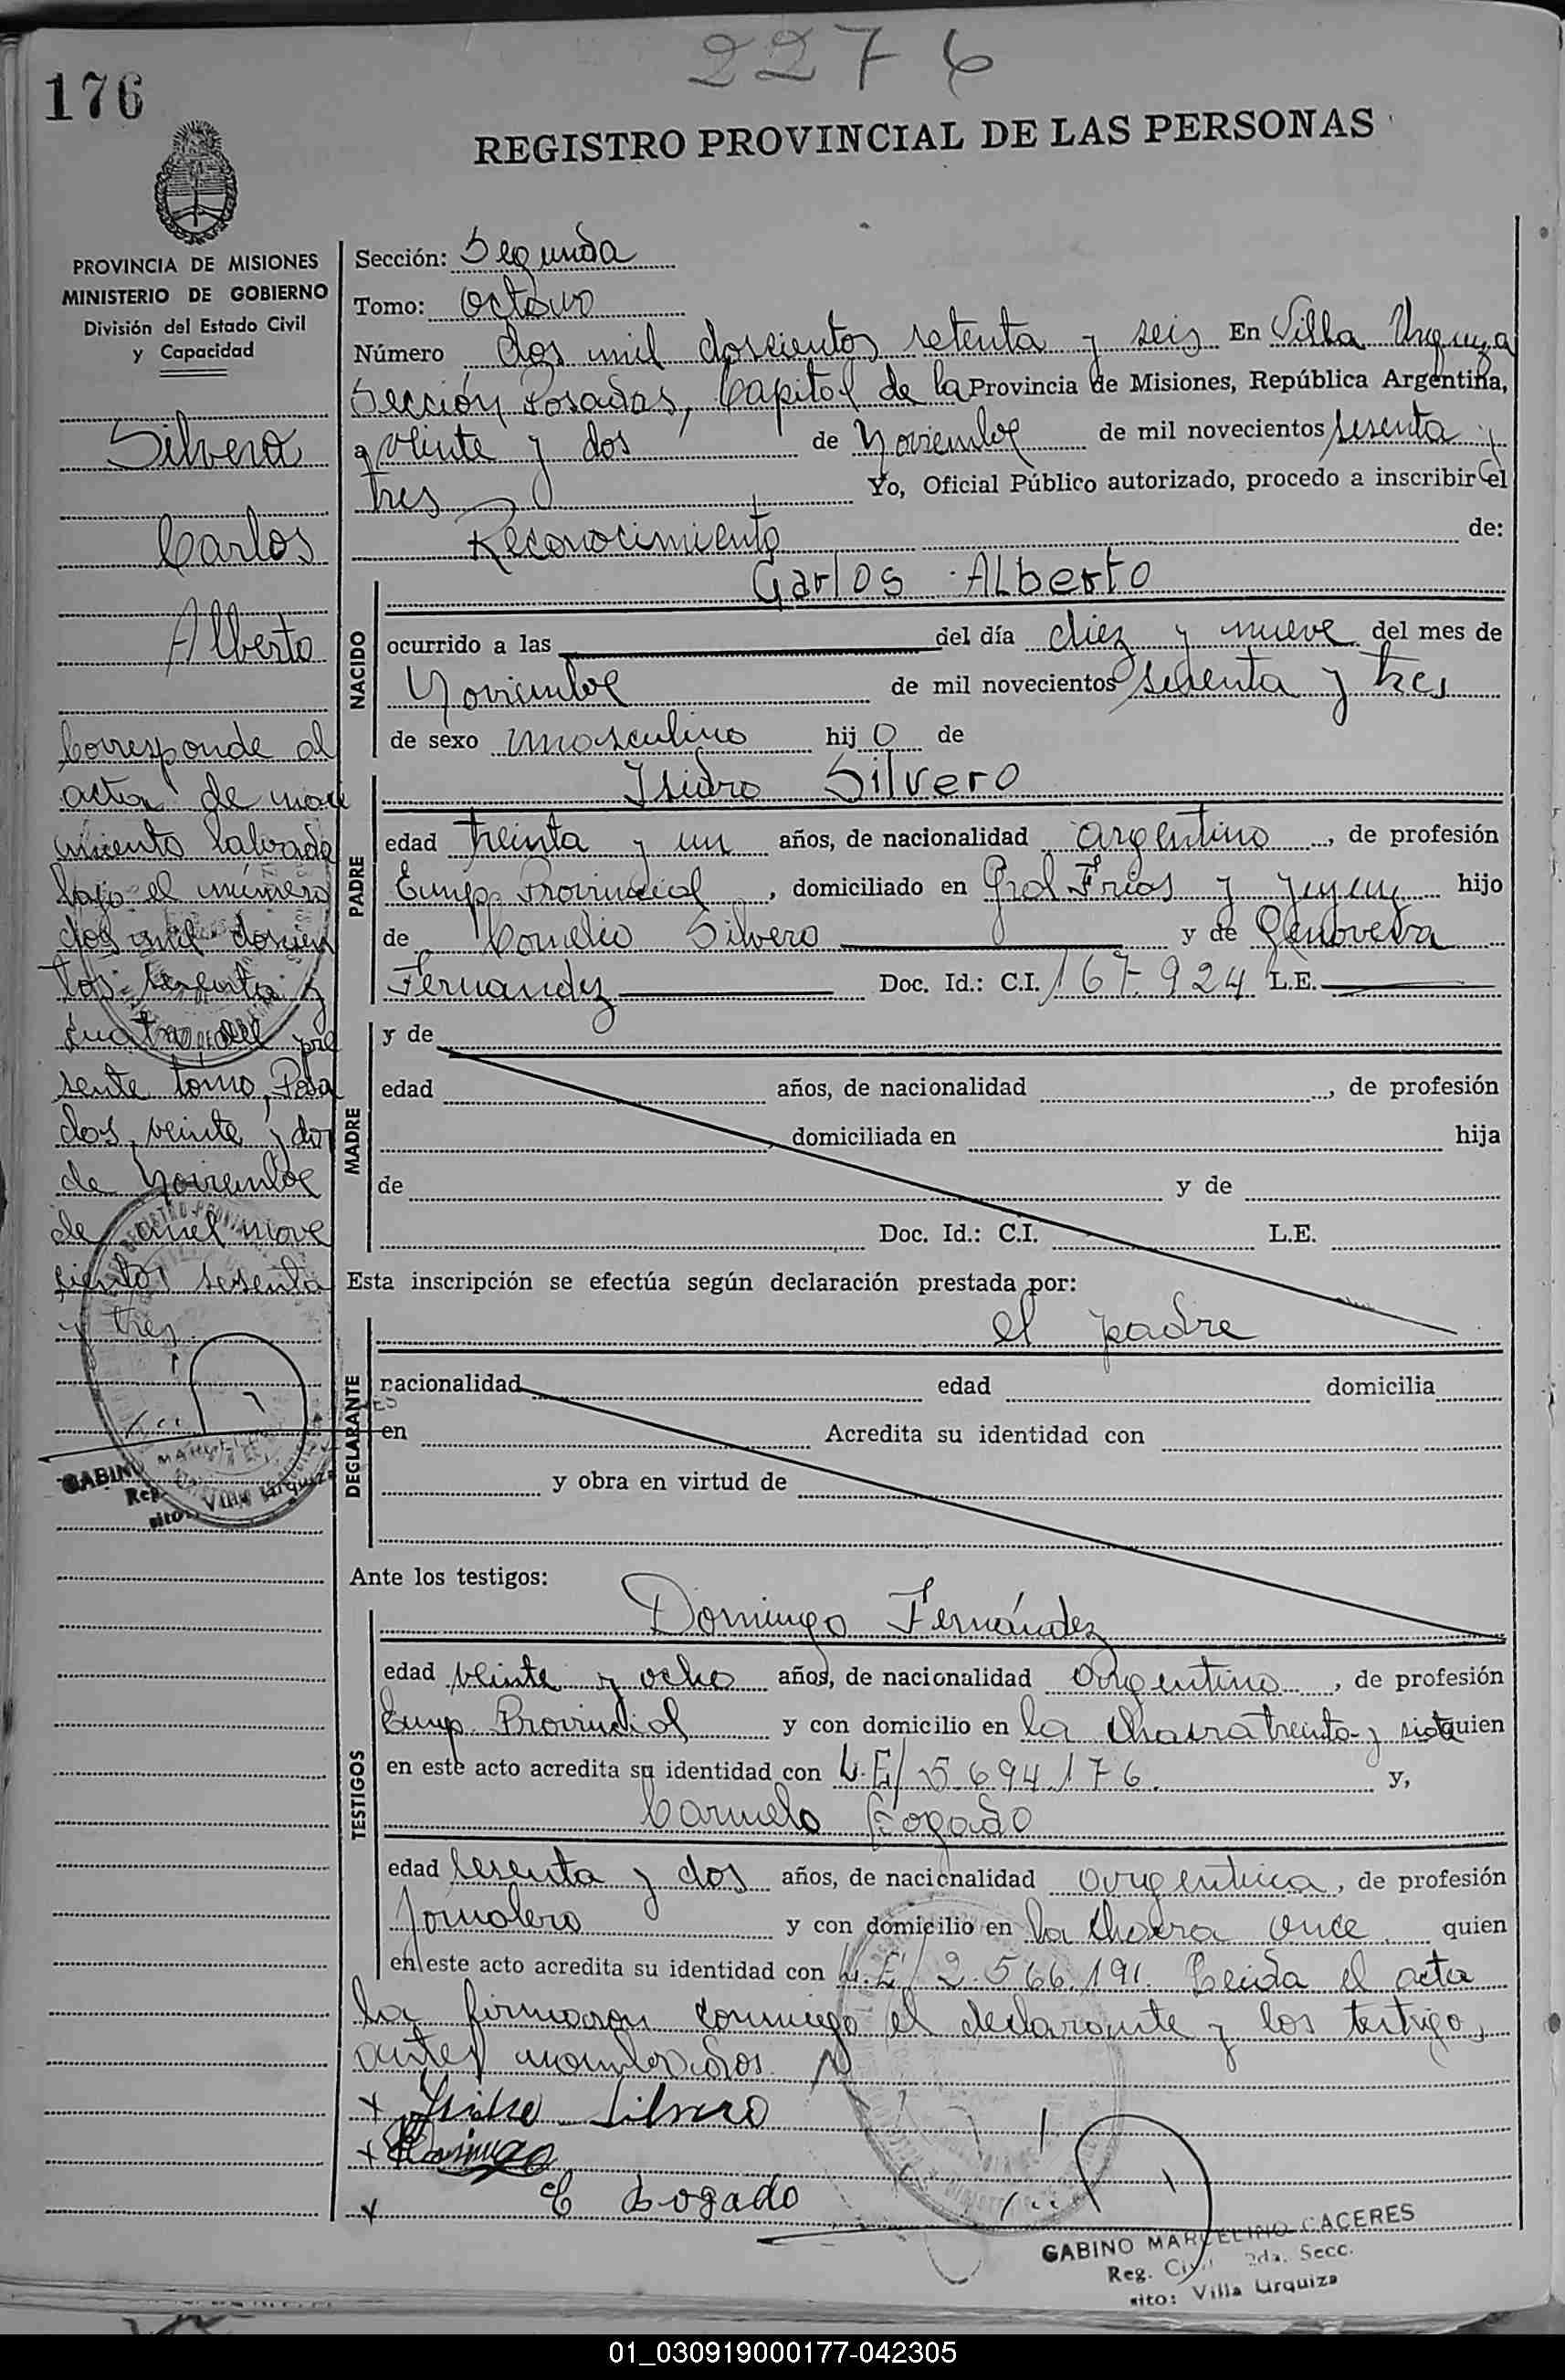 2276
176
REGISTRO PROVINCIAL DE LAS PERSONAS
PROVINCIA DE MISIONES
MINISTERIO DE GOBIERNO
División del Estado Civil
y Capacidad
Silvero
Carlos
Alberto
Corresponde al
acta de naci
miento labrada
bajo el número
dos mil doscien
tos setenta y
cuatro del pre
sente tomo, Posa
das, veinte y dos
de Noviembre
de mil nove
cientos sesenta
y tres
GABINO MARCELI
Reg.
sito: Villa Urquiza
Sección: Segunda
Tomo: Octavo
Número dos mil doscientos setenta y seis En Villa Urquiza
Sección Posadas, Capital de la Provincia de Misiones, República Argentina,
a veinte y dos de Noviembre de mil novecientos sesenta y
tres Yo, Oficial Público autorizado, procedo a inscribir el
Reconocimiento de:
NACIDO
Carlos Alberto
ocurrido a las del día diez y nueve del mes de
Noviembre de mil novecientos sesenta y tres
de sexo masculino hijo de
PADRE
Isidro Silvero
edad treinta y un años, de nacionalidad argentino, de profesión
Emp. Provincial, domiciliado en Gral Frías y Jujuy hijo
de Cornelio Silvero y de Genoveva
Fernandez Doc. Id.: C.I. 167.924 L.E.
MADRE
y de
edad años, de nacionalidad , de profesión
domiciliada en hija
de y de
Doc. Id.: C.I. L.E.
Esta inscripción se efectúa según declaración prestada por:
DECLARANTE
el padre
nacionalidad edad domicilia
en Acredita su identidad con
y obra en virtud de
Ante los testigos:
TESTIGOS
Domingo Fernández
edad veinte y ocho años, de nacionalidad Argentino, de profesión
Emp. Provincial y con domicilio en la chacra treinta y siete quien
en este acto acredita su identidad con L.E/ 5.694.176. y,
Carmelo Bogado
edad sesenta y dos años, de nacionalidad argentina, de profesión
Jornalero y con domicilio en la chacra once quien
en este acto acredita su identidad con L.E/ 2.566.191. Leida el acta
la firmaron conmigo el declarante y los testigos
antes nombrados.
x Isidro Silvero
x Domingo
x C Bogado
GABINO MARCELINO CACERES
Reg. Civil 2da. Secc.
sito: Villa Urquiza
01_030919000177-042305